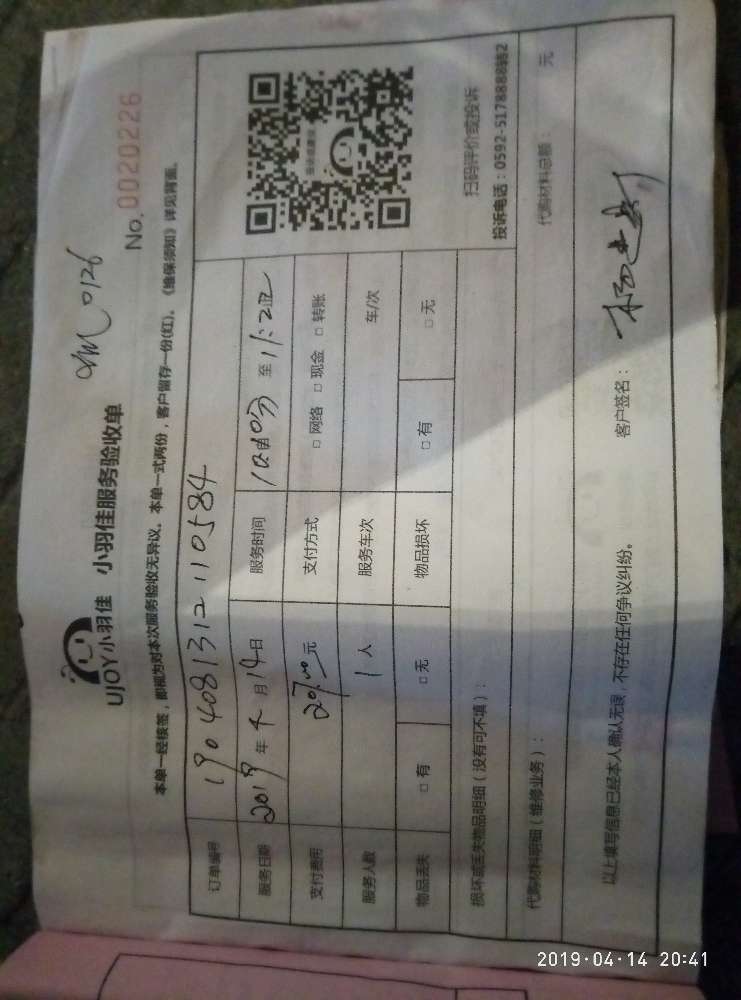 UJOY小羽佳 小羽佳服务验收单
0126
No.0020226
本单一经核签,即视为对本次服务验收无异议。本单一式两份,客户留存一份(红)。《维保须知》详见背面。
订单编号 190408131211 0584
服务日期 2019 年 4 月 14 日 服务时间 至
支付费用 207.00 元 支付方式 □ 网络 □ 现金 □ 转账
服务人数 1 人 服务车次 车/次
物品丢失 □ 有 □ 无 物品损坏 □ 有 □ 无
扫码评价或投诉
投诉电话:0592-5178888转2
损坏或丢失物品明细(没有可不填):
代购材料明细(维修业务): 代购材料总额: 元
以上填写信息已经本人确认无误,不存在任何争议纠纷。 客户签名:
2019·04·14 20:41